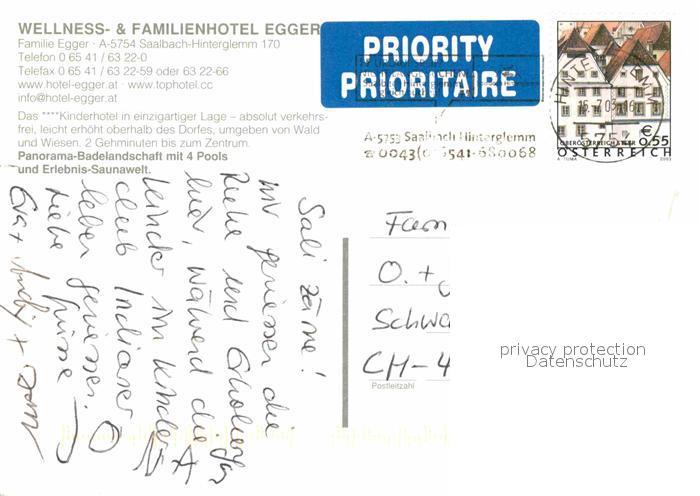 WELLNESS- & FAMILIENHOTEL EGGER
Familie Egger · A-5754 Saalbach-Hinterglemm 170
Telefon 0 65 41 / 63 22-0
Telefax 0 65 41 / 63 22-59 oder 63 22-66
www.hotel-egger.at · www.tophotel.cc
info@hotel-egger.at
Das ****Kinderhotel in einzigartiger Lage – absolut verkehrs-
frei, leicht erhöht oberhalb des Dorfes, umgeben von Wald
und Wiesen. 2 Gehminuten bis zum Zentrum.
Panorama-Badelandschaft mit 4 Pools
und Erlebnis-Saunawelt.
PRIORITY
PRIORITAIRE
A-5753 Saalbach Hinterglemm
5754
€ 0,55
ÖSTERREICH
2003
Sali zäme!
Wir geniessen die
Ruhe und Erholung
hier, während die
Kinder im Kinder
club Indianer
leben geniessen.
Liebe Grüsse
Eva +
Fam
O. +
Schwa
CH-4
Postleitzahl
privacy protection
Datenschutz